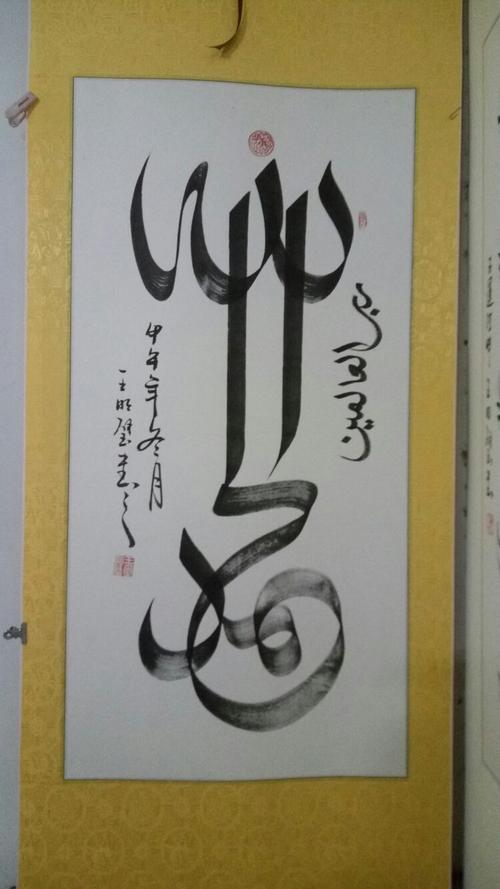 الحمد لله
رب العالمين
甲午年冬月
王明璧